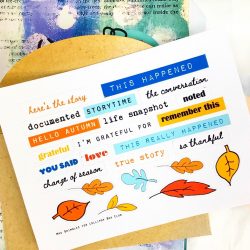 THIS HAPPENED
here's the story
the conversation
documented STORYTIME noted
HELLO AUTUMN life snapshot remember this
grateful I'M GRATEFUL FOR
THIS REALLY HAPPENED
YOU SAID love true story so thankful
change of season